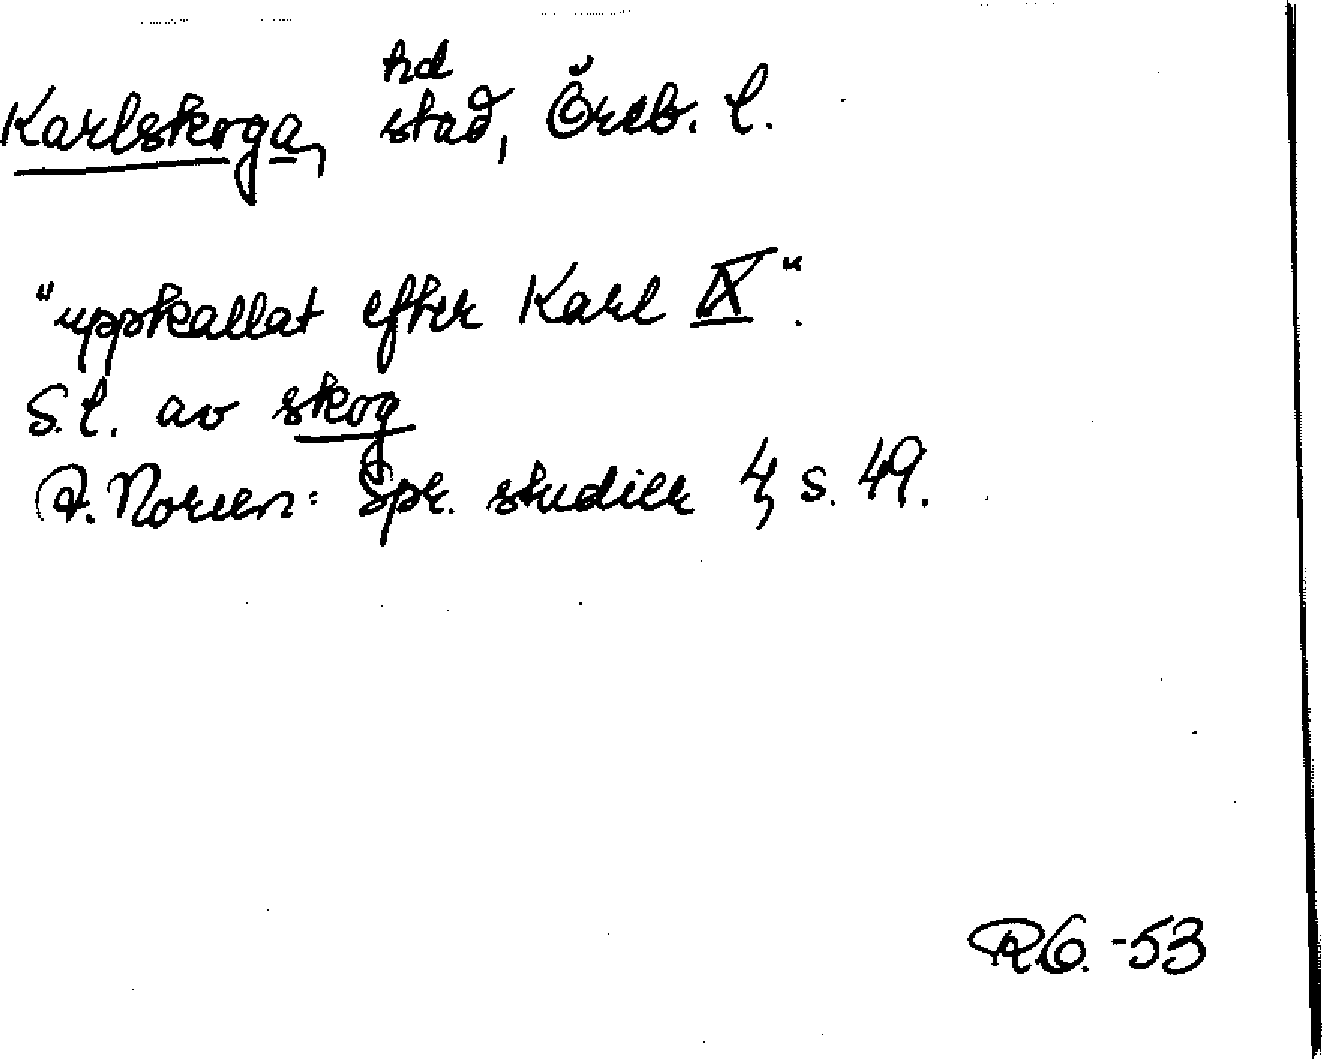 hd
Karlskoga, stad, Öreb. l.
"uppkallat efter Karl IX".
S.l. av skog
A. Noreen: Spr. studier 4, s. 49.
R.G. -53